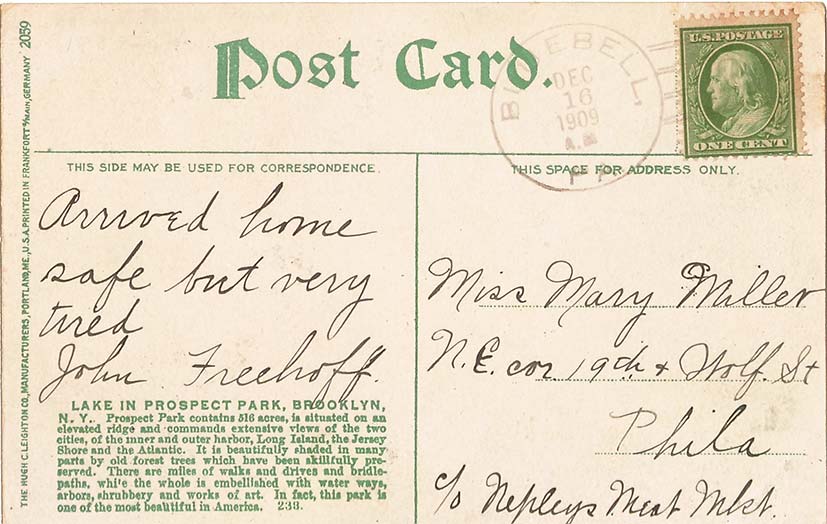 Post Card.
BLUEBELL,
DEC
16
1909
A.M
PA
U.S. POSTAGE
ONE CENT
THIS SIDE MAY BE USED FOR CORRESPONDENCE.
Arrived home
safe but very
tired
John Freehoff.
LAKE IN PROSPECT PARK, BROOKLYN,
N. Y.. Prospect Park contains 516 acres, is situated on an
elevated ridge and commands extensive views of the two
cities, of the inner and outer harbor, Long Island, the Jersey
Shore and the Atlantic. It is beautifully shaded in many
parts by old forest trees which have been skillfully pre-
served. There are miles of walks and drives and bridle-
paths, while the whole is embellished with water ways,
arbors, shrubbery and works of art. In fact, this park is
one of the most beautiful in America. 233.
THIS SPACE FOR ADDRESS ONLY.
Miss Mary Miller
N.E. cor 19th & Wolf. St
Phila
c/o Nepleys Meat Mkt.
THE HUGH C. LEIGHTON CO., MANUFACTURERS, PORTLAND, ME., U.S.A. PRINTED IN FRANKFORT o/MAIN, GERMANY 2059